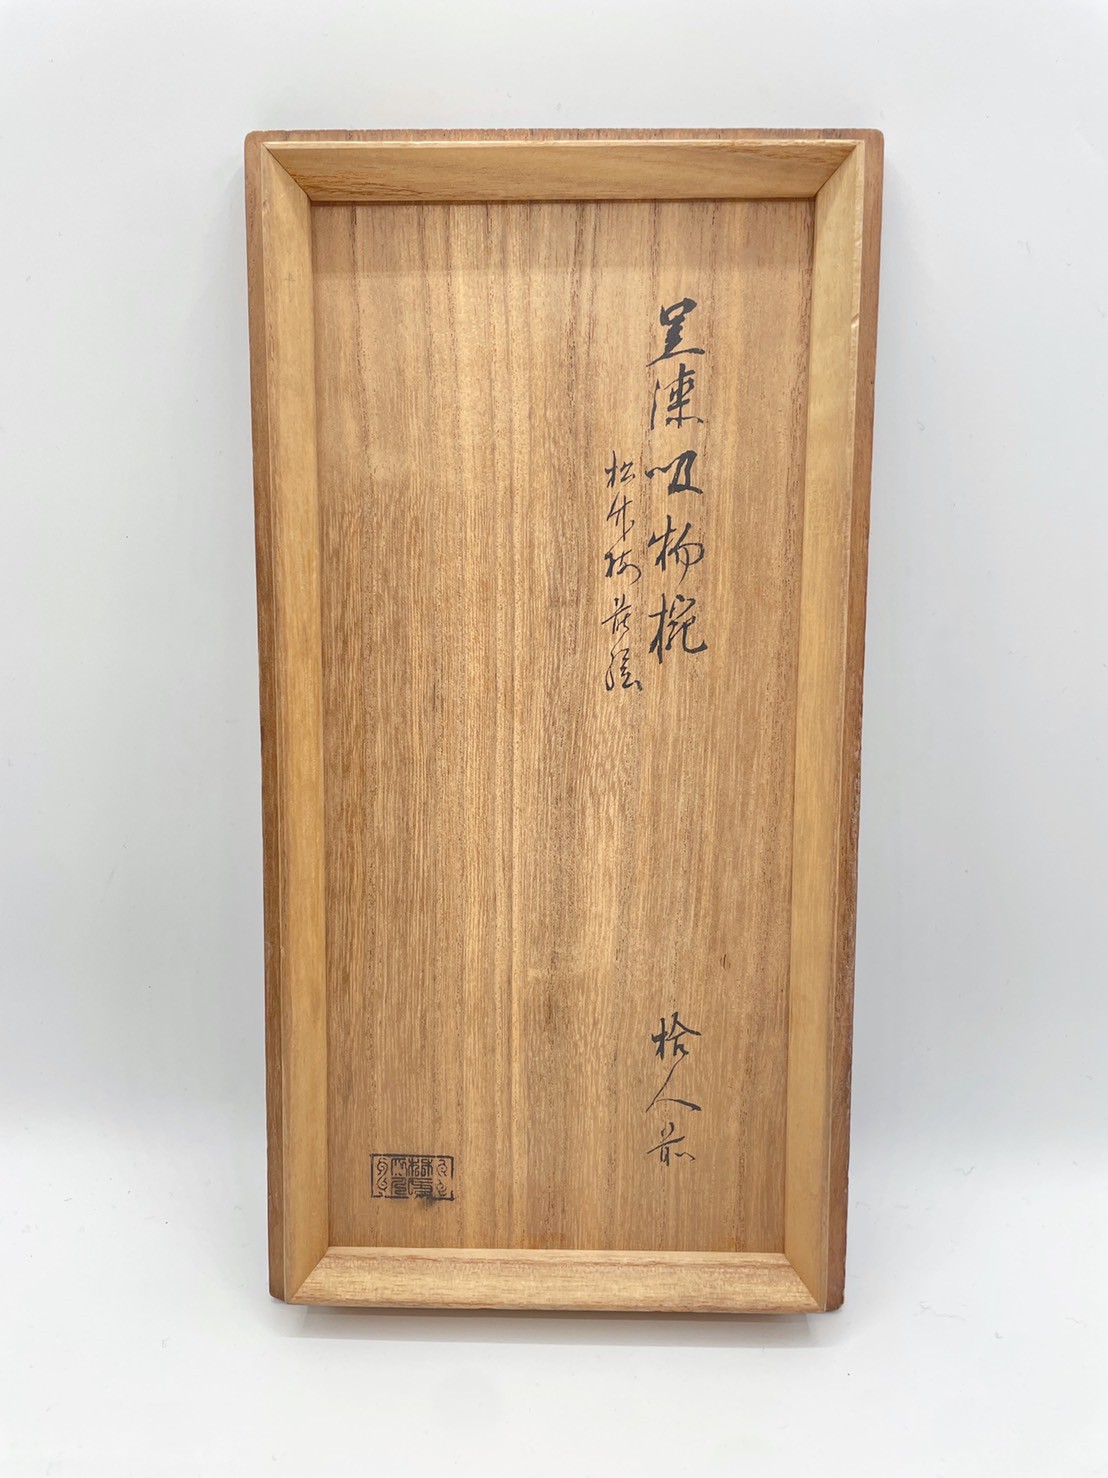 黒漆吸物椀
松竹梅蒔絵
拾人前